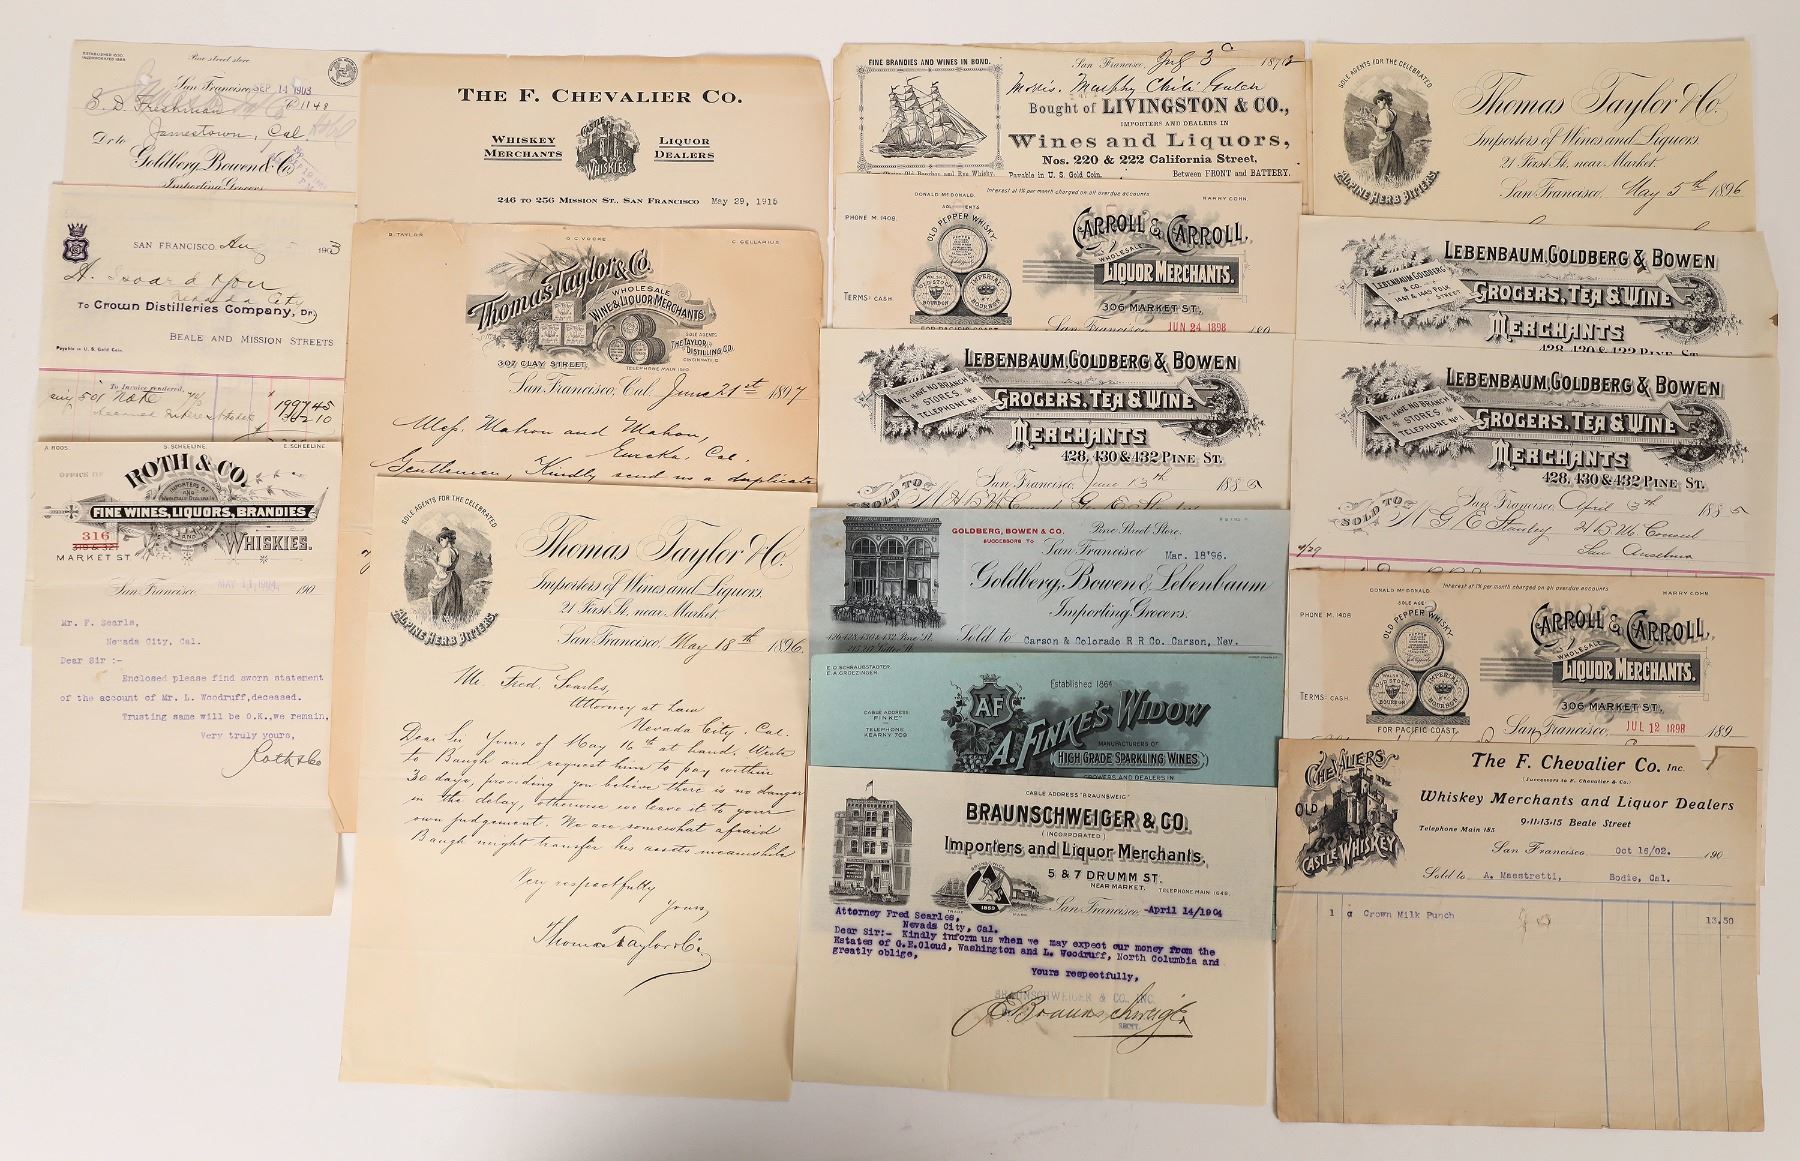 ESTABLISHED 1850.
INCORPORATED 1885.
Pine street store
San Francisco, SEP 14 1903
E. D. Freshman C 1148
Jamestown, Cal.
Dr to
Goldberg, Bowen & Co.
Importing Grocers
SAN FRANCISCO, Aug 5 1903
To Crown Distilleries Company, Dr.
BEALE AND MISSION STREETS
Payable in U. S. Gold Coin.
To Invoice rendered,
1997 45
A ROOS. S. SCHEELINE. E. SCHEELINE
OFFICE OF
ROTH & CO.
IMPORTERS OF
AND
FINE WINES, LIQUORS, BRANDIES
AND
WHISKIES.
316
MARKET ST.
San Francisco, MAY 11, 1904. 190
Mr. F. Searls,
Nevada City. Cal.
Dear Sir :-
Enclosed please find sworn statement
of the account of Mr. L. Woodruff, deceased.
Trusting same will be O.K., we remain,
Very truly yours,
Roth & Co
THE F. CHEVALIER CO.
WHISKEY MERCHANTS
CASTLE WHISKIES
LIQUOR DEALERS
246 TO 256 MISSION ST., SAN FRANCISCO May 29, 1915
R. TAYLOR G. C. VOORE C. CELLARIUS
Thomas Taylor & Co.
WHOLESALE
WINE & LIQUOR MERCHANTS
SOLE AGENTS
THE TAYLOR DISTILLING CO.
CINCINNATI O.
307 CLAY STREET.
San Francisco, Cal. June 21st 1897
Mess. Mahon and Mahon,
Eureka, Cal.
Gentlemen, Kindly send us a duplicate
SOLE AGENTS FOR THE CELEBRATED
ALPINE HERB BITTERS.
Thomas Taylor & Co.
Importers of Wines and Liquors.
21 First St. near Market.
San Francisco, May 18th 1896
Mr. Fred. Searles,
Attorney at Law
Nevada City. Cal.
Dear Sir Yours of May 16th at hand. Write
to Baugh and request him to pay within
30 days, providing you believe there is no danger
in the delay, otherwise we leave it to your
own judgement. We are somewhat afraid
Baugh might transfer his assets meanwhile
Very respectfully
Yours,
Thomas Taylor & Co.
FINE BRANDIES AND WINES IN BOND. San Francisco, 187
Bought of LIVINGSTON & CO.,
IMPORTERS AND DEALERS IN
Wines and Liquors,
Nos. 220 & 222 California Street,
Payable in U. S. Gold Coin. Between FRONT and BATTERY.
Interest at 1% per month charged on all overdue accounts.
DONALD McDONALD. HARRY COHN.
PHONE M. 1408.
OLD PEPPER WHISKY
CARROLL & CARROLL,
WHOLESALE
LIQUOR MERCHANTS.
OLD STOCK BOURBON
IMPERIAL BOURBON
TERMS: CASH
306 MARKET ST.
FOR PACIFIC COAST.
San Francisco, JUN 24 1898 189
LEBENBAUM, GOLDBERG & BOWEN
WE HAVE NO BRANCH STORES. TELEPHONE No 1
GROCERS, TEA & WINE
MERCHANTS
428, 430 & 432 PINE ST.
San Francisco, June 13th 1885
SOLD TO
GOLDBERG, BOWEN & CO.
SUCCESSORS TO
Pine Street Store.
San Francisco Mar. 18'96.
Goldberg, Bowen & Lebenbaum
Importing Grocers.
426-428-430 & 432 Pine St.
215-217 Sutter St.
Sold to Carson & Colorado R R Co. Carson, Nev.
E. C. SCHRAUBSTADTER
E. A. GROEZINGER.
Established 1864
CABLE ADDRESS "FINKE"
TELEPHONE KEARNY 709
AF
A. FINKE'S WIDOW
MANUFACTURERS OF
HIGH GRADE SPARKLING WINES
GROWERS AND DEALERS IN
CABLE ADDRESS "BRAUNSWEIG"
BRAUNSCHWEIGER & CO.
(INCORPORATED)
Importers and Liquor Merchants,
5 & 7 DRUMM ST.
NEAR MARKET. TELEPHONE MAIN 1648.
TRADE MARK 1869
San Francisco, April 14/1904
Attorney Fred Searles,
Nevada City, Cal.
Dear Sir:- Kindly inform us when we may expect our money from the
Estates of G.E.Cloud, Washington and L. Woodruff, North Columbia and
greatly oblige,
Yours respectfully,
BRAUNSCHWEIGER & CO., INC.
E. Braunschweiger
SECTY.
SOLE AGENTS FOR THE CELEBRATED
ALPINE HERB BITTERS.
Thomas Taylor & Co.
Importers of Wines and Liquors.
21 First St. near Market.
San Francisco, May 5th 1896
LEBENBAUM, GOLDBERG & BOWEN
LEBENBAUM GOLDBERG & CO.
1447 & 1449 POLK STREET
GROCERS, TEA & WINE
MERCHANTS
428, 430 & 432 PINE ST.
LEBENBAUM, GOLDBERG & BOWEN
WE HAVE NO BRANCH STORES. TELEPHONE No 1
GROCERS, TEA & WINE
MERCHANTS
428, 430 & 432 PINE ST.
San Francisco, April 13th 1885
SOLD TO
Interest at 1% per month charged on all overdue accounts.
DONALD McDONALD HARRY COHN.
PHONE M. 1408
SOLE AGENTS
OLD PEPPER WHISKY
CARROLL & CARROLL,
WHOLESALE
LIQUOR MERCHANTS.
OLD STOCK BOURBON
IMPERIAL BOURBON
TERMS: CASH
306 MARKET ST.
FOR PACIFIC COAST.
San Francisco, JUL 12 1898 189
CHEVALIERS
OLD
CASTLE WHISKEY
The F. Chevalier Co. Inc.
(Successors to F. Chevalier & Co.)
Whiskey Merchants and Liquor Dealers
9-11-13-15 Beale Street
Telephone Main 185
San Francisco, Oct 16/02. 190
Sold to A. Maestretti, Bodie, Cal.
1 c Crown Milk Punch 13.50